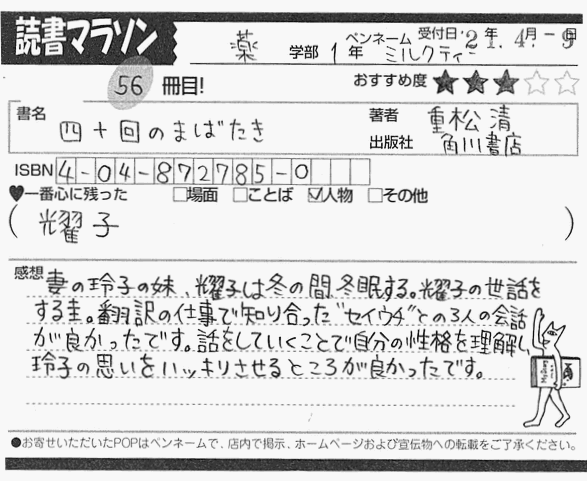 読書マラソン
薬 学部 1 年 ペンネーム ミルクティー 受付日: '21年 4月-9日
56 冊目! おすすめ度 ★★★☆☆
書名 四十回のまばたき 著者 重松清
出版社 角川書店
ISBN 4-04-872785-0
♥一番心に残った □場面 □ことば ☑人物 □その他
( 耀子 )
感想 妻の玲子の妹、耀子は冬の間、冬眠する。耀子の世話を
する圭。翻訳の仕事で知り合った"セイウチ"との3人の会話
が良かったです。話をしていくことで自分の性格を理解し、
玲子の思いをハッキリさせるところが良かったです。
●お寄せいただいたPOPはペンネームで、店内で掲示、ホームページおよび宣伝物への転載をご了承ください。